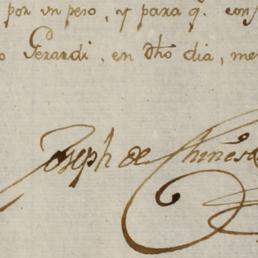 por un pero, y para q. con
o Gerardi, en dho dia, me
Joseph de